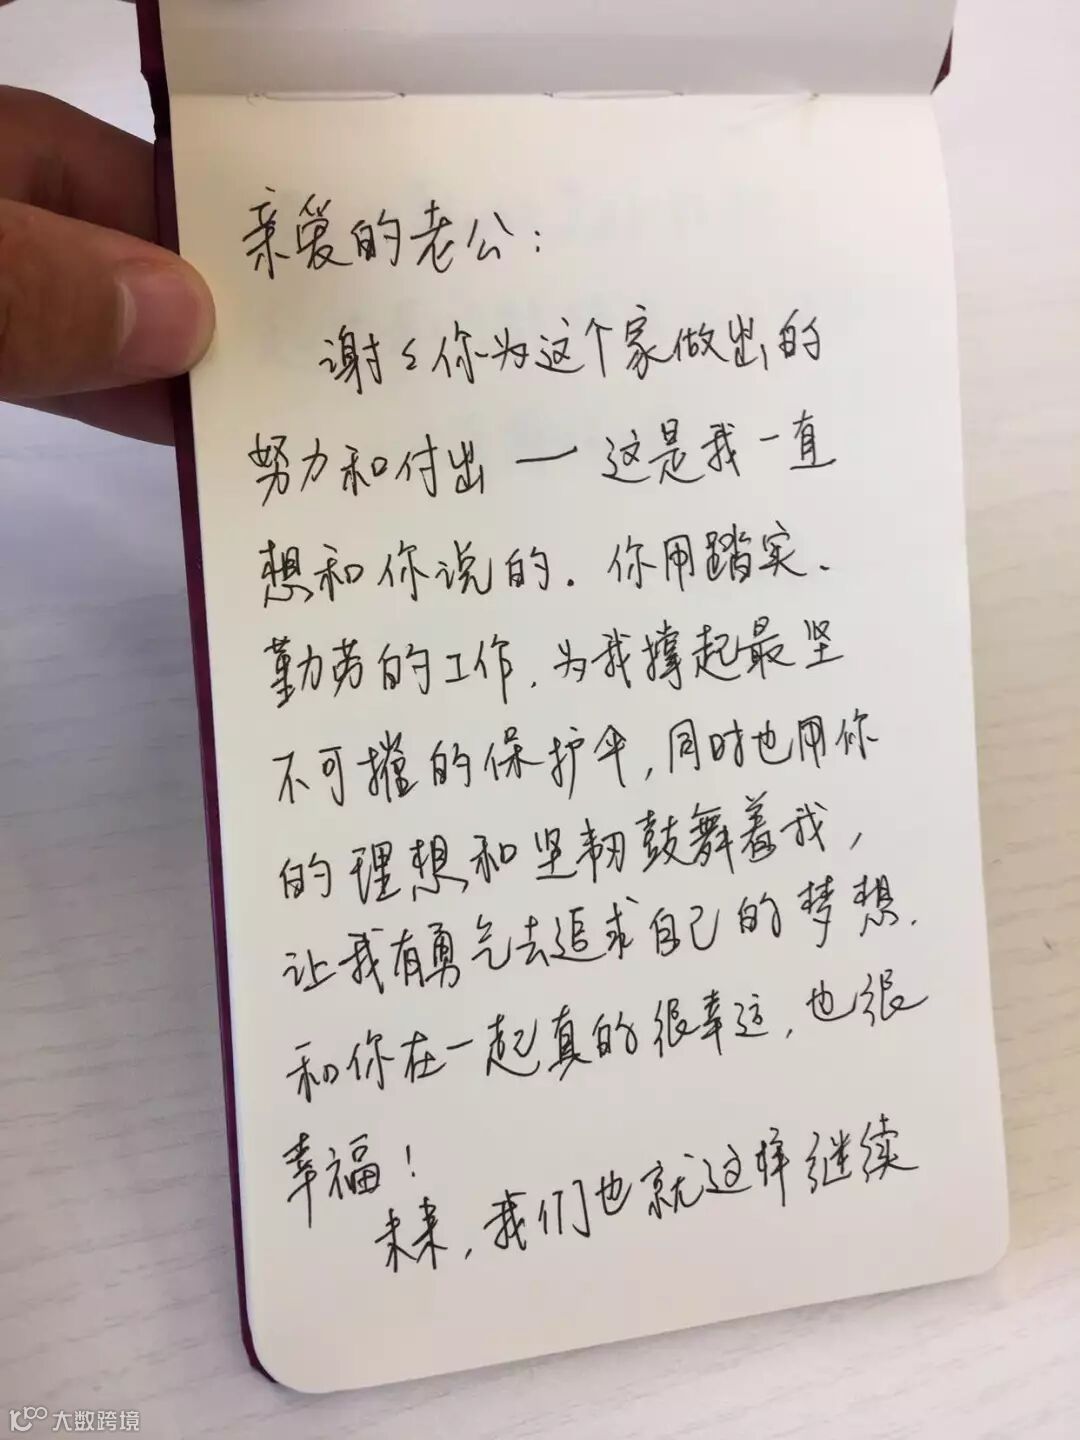 亲爱的老公：
谢〻你为这个家做出的
努力和付出 — 这是我一直
想和你说的. 你用踏实、
勤劳的工作, 为我撑起最坚
不可摧的保护伞, 同时也用你
的理想和坚韧鼓舞着我,
让我有勇气去追求自己的梦想.
和你在一起真的很幸运, 也很
幸福!
未来, 我们也就这样继续
大数跨境